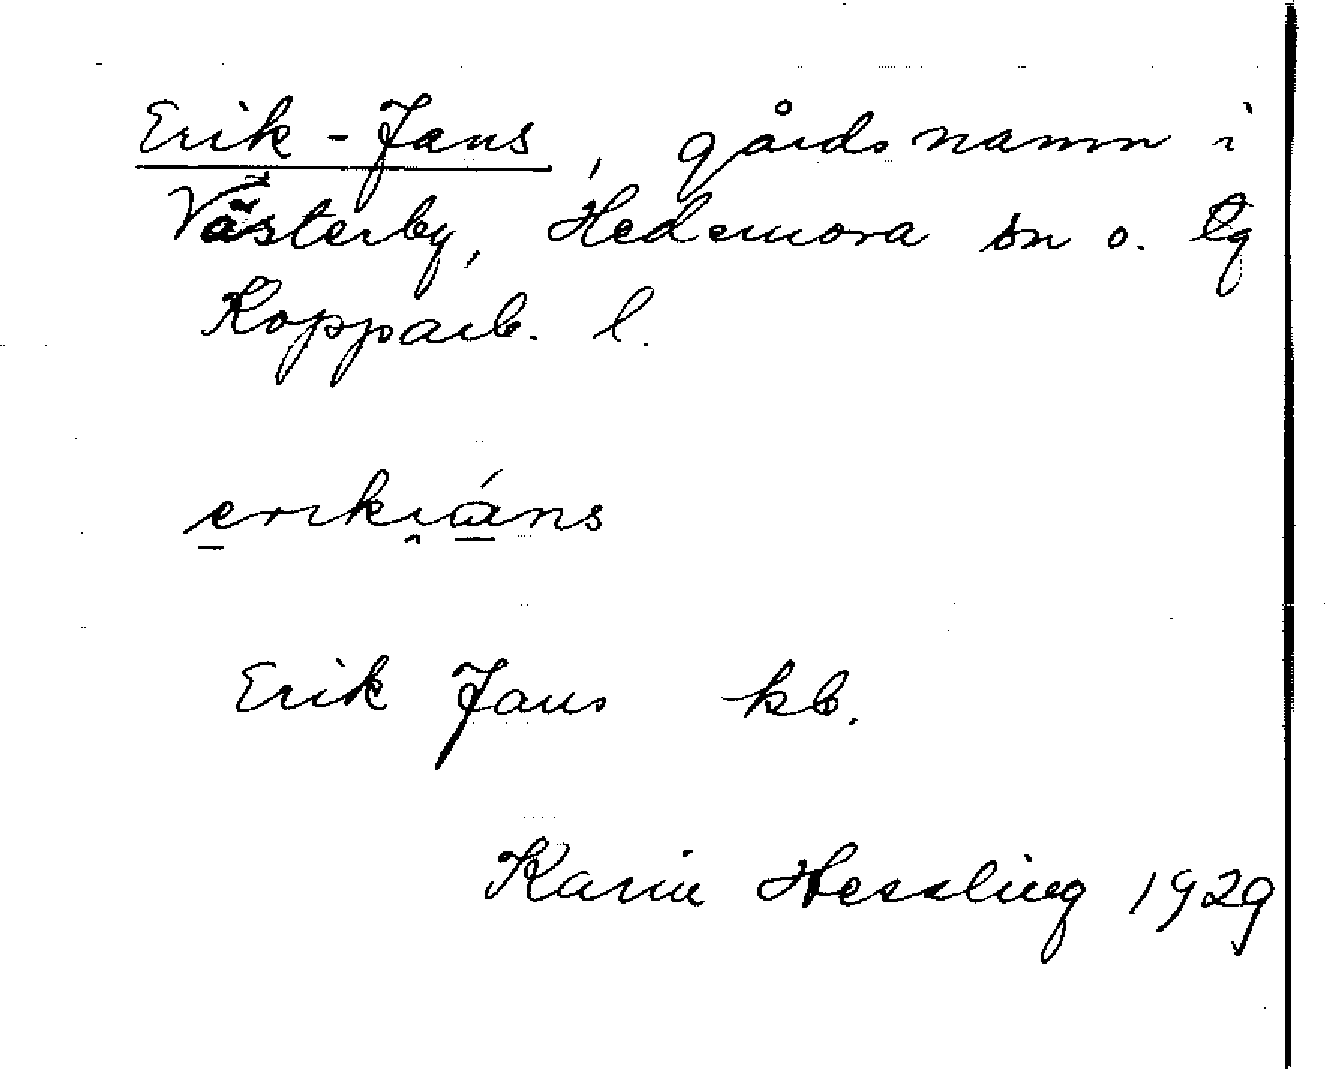 Erik-Jans, gårdsnamn i
Västerby, Hedemora sn o. tg
Kopparb. l.
erik ı̯áns
Erik Jans kb.
Karin Hessling 1929